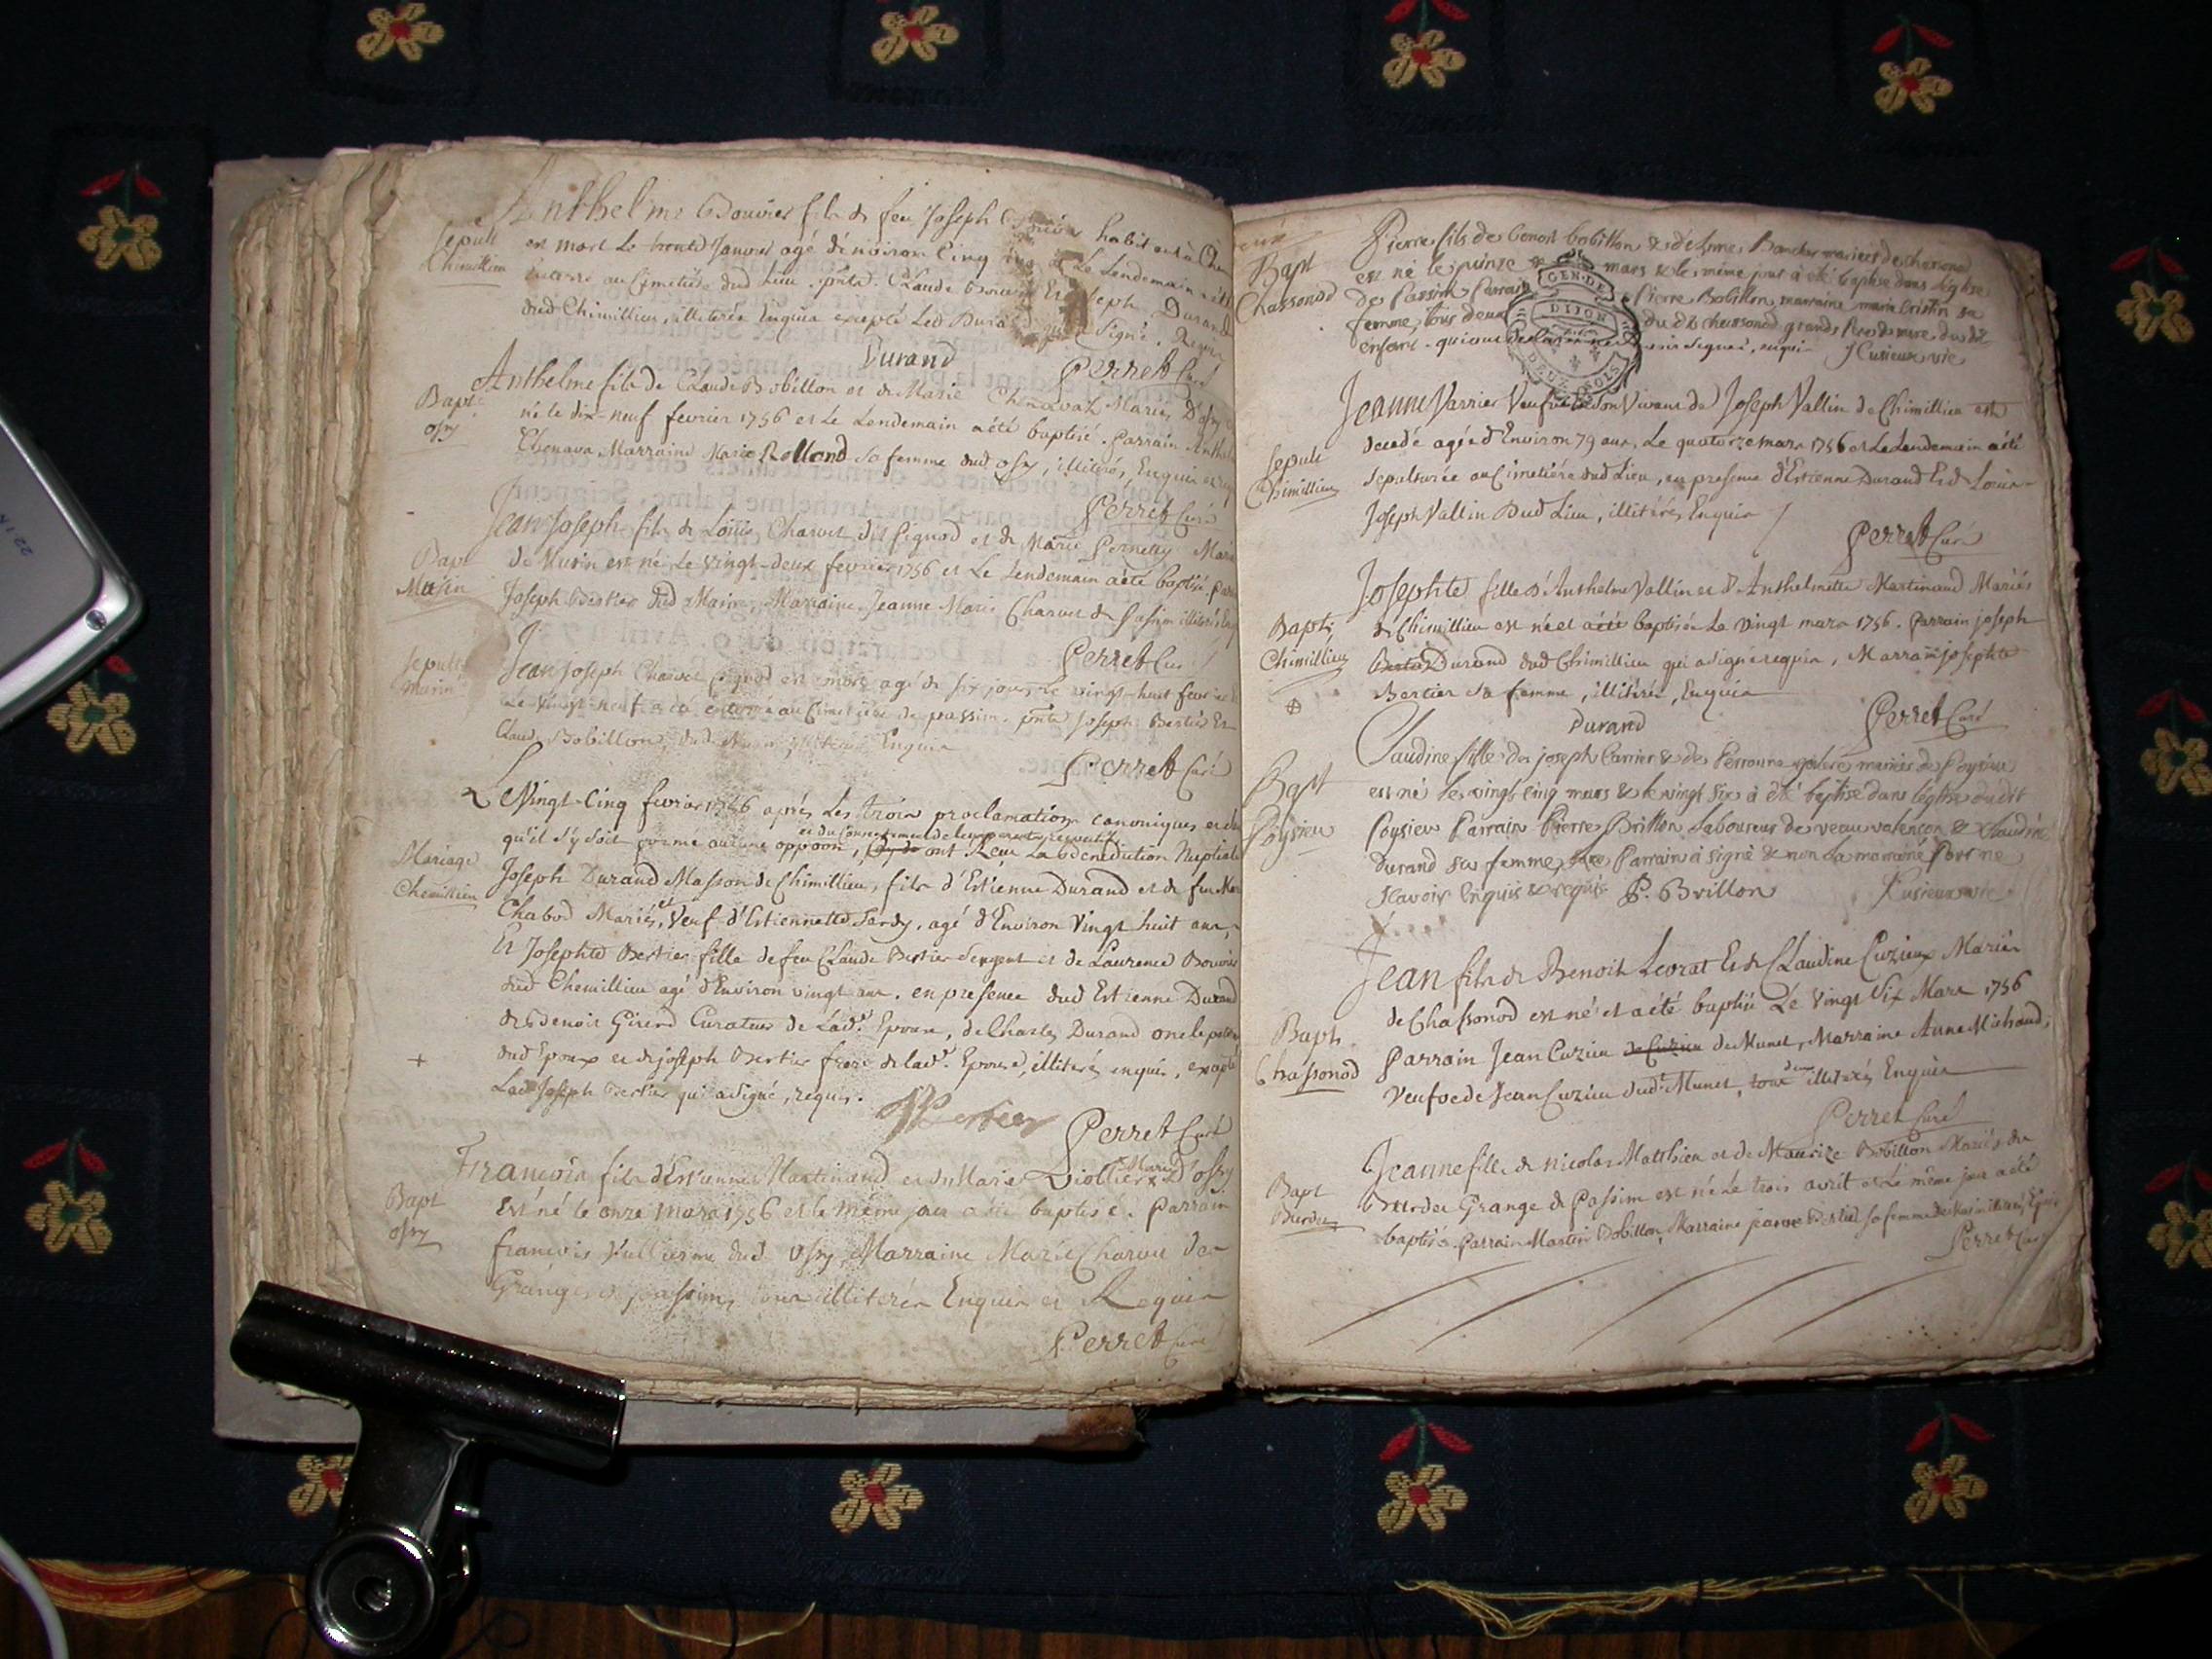 Anthelme Bouvier fils de feu Joseph habitant à
Sepult
Chimillieu
est mort Le trente Janvier agé d'environ Cinq ans et Le Lendemain
Enterré au Cimetière dud Lieu. pnts. Claude Et Joseph Durand
dud Chimillieu, illiterés Enquis excepté Led Durand qui a Signé. Requis
Durand
Perret Curé
Bapt
osy
Anthelme fils de Claude Bobillon et de Marie Chenavaz Mariés D'osy
né le dix-neuf fevrier 1756 et Le Lendemain a été baptisé. Parrain
Chenava Marraine Marie Rolland sa femme dud osy, illiterés, Enquis
Perret Curé
Bapt
Musin
Jean Joseph fils de Louis Charvet dit Pignod et de Marie Pernetty
de Musin est né Le vingt-deux fevrier 1756 et Le Lendemain a été baptisé.
Joseph Bertier dud Musin, Marraine Jeanne Marie Charvet de Passim illiterés
Perret Curé
Sepult
Jean joseph Charvet Pignod est mort agé de six jours Le vingt-huit fevrier
Le vingt-neuf a été enterré au Cimetière de passim. pnts Joseph Bertier Et
Claude Bobillon, dud Musin, illiterés Enquis
Perret Curé
Le Vingt-Cinq fevrier 1756 après Les trois proclamations canoniques
et du consentement de leurs parents respectifs
qu'il s'y soit formé aucune oppoon, ont Reçu La Benediction Nuptiale
Mariage
Chemillieu
Joseph Durand Masson de Chimillieu, fils d'Estienne Durand et de feu
Chabod Mariés, et Veuf d'Estiennette Tardy, agé d'Environ Vingt huit ans,
Et Josephte Bertier fille de feu Claude Bertier Sergent et de Laurence Bouvier
dud Chemillieu agé d'Environ vingt ans. en presence dud Estienne Durand
de Benoit Girerd Curateur de Lad.e Epouse, de Charles Durand oncle
dud Epoux et de joseph Bertier frere de lad.e Epouse, illiterés, enquis, excepté
Led Joseph Bertier qui a signé, requis.
JBertier
Perret Curé
Bapt
osy
François fils d'Estienne Martinand et de Marie Viollier Mariés D'osy
Est né le onze Mars 1756 et le même jour a été baptisé. Parrain
françois Vulliesme dud Osy, Marraine Marie Charvet de
Grange de passim, tous illiterés Enquis et Requis
Perret Curé
Bapt
Chassonod
Pierre fils de benoit bobillon & d'Anne mariers de chasonod
est né le quinze mars & le même jour à été baptisé dans l'église
de Passin Parrain Pierre Bobillon marraine marie Cristin sa
femme, tous deux du dt chassonod grands Pere & mere du dit
enfant. signer, enqui. JCusieux vic
GEN. DE
DIJON
DEUX SOLS
Jeanne Varrier Veufve de son Vivant de Joseph Vallin de Chimillieu est
Sepult
Chimillieu
decedé agée d'Environ 79 ans, Le quatorze mars 1756 et Le Lendemain a été
Sepulturée au Cimetière dud Lieu, en presence d'Estienne Durand Et Louis
Joseph Vallin Dud Lieu, illiterés, Enquis
Perret Curé
Bapt
Chimillieu
Josephte fille d'Anthelme Vallin et d'Anthelmette Martinand Mariés
de Chimillieu est née et a été baptisée Le vingt mars 1756. Parrain joseph
Durand dud Chimillieu qui a signé requis, Marraine josephte
Bertier sa femme, illiterée, Enquis
Durand
Perret Curé
Bapt
Poysieu
Claudine fille de joseph Carrier & de Perronne mariés de Poysieu
est né le vingt cinq mars & le vingt six à été baptisé dans léglise du dit
Poysieu Parrain Pierre Brillon Laboureur de veau valencon & Claudine
durand sa femme, Le Parrain à signé & non La maraine Pour ne
sçavoir Enquis & requis P. Brillon
Cusieux vic
Bapt
Chassonod
Jean fils de Benoit Levrat Et de Claudine Cuzieux Mariés
de Chassonod est né et a été baptisé Le Vingt Six Mars 1756
Parrain Jean Cuzieu de Cuzieu de Munet, Marraine Anne Michaud,
Veufve de Jean Cuzieu dud Munet, tous deux illiterés, Enquis
Perret Curé
Bapt
Burdeu
Jeanne fille de Nicolas Matthieu et de Maurize Bobillon Mariés du
Burdeu Grange de Passim est née Le trois avril et Le même jour a été
baptisée. Parrain Martin Bobillon, Marraine jeanne Bertier sa femme de Musin illiterés, Enquis
Perret Curé